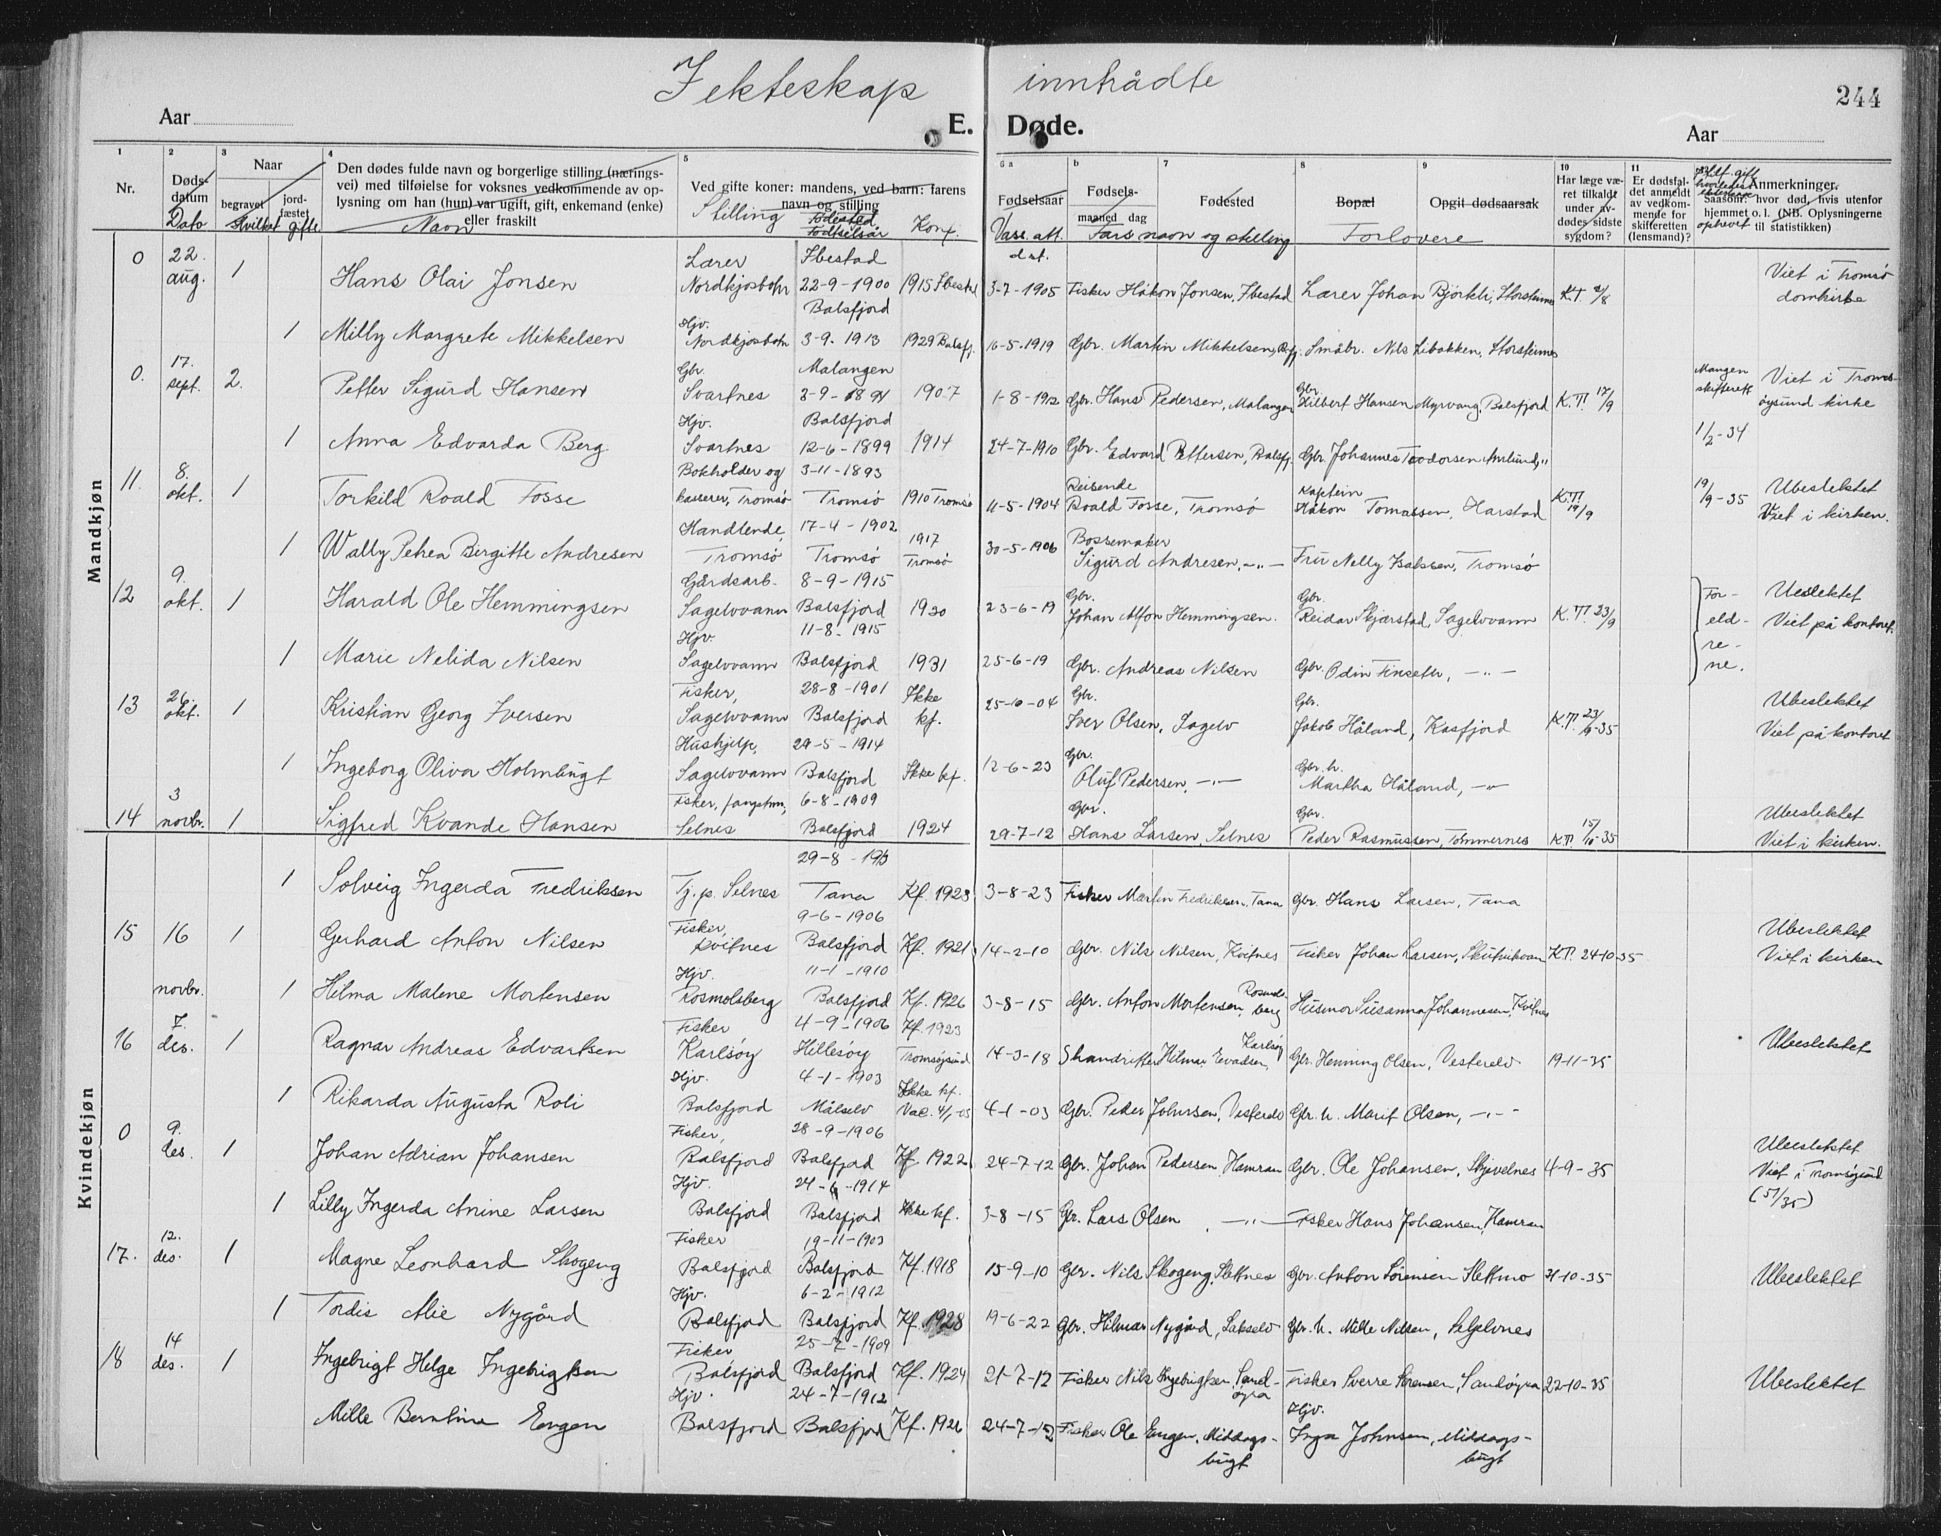 Fekteskap inntrådte
244
Aar E. Døde. Aar
1 2 3 4 5 6 a b 7 8 9 10 11
Nr.
Døds-datum
Dato
Naar
begravet
jord-fæstet
Hvilket gifte
Den dødes fulde navn og borgerlige stilling (nærings-
vei) med tilføielse for voksnes vedkommende av op-
lysning om han (hun) var ugift, gift, enkemand (enke)
eller fraskilt
Navn
Ved gifte koner: mandens, ved barn: farens
navn og stilling
Stilling Fødested Fødselsår Konf.
Fødselsaar
Vacc. att. dat.
Fødsels-
maaned dag
Fødested
Fars navn og stilling
Bopæl
Opgit dødsaarsak
Forlovere
Har læge væ-
ret tilkaldt
under av-
dødes sidste
sygdom?
Er dødsfal-
det anmeldt
av vedkom-
mende for
skifteretten
(lensmand)?
Anmerkninger.
Saasom: hvor død, hvis utenfor
hjemmet o. l. (NB. Oplysningerne
til statistikken)
Mandkjøn
0 22. aug. 1 Hans Olai Jonsen Lærer Nordkjosbotn Ibestad 22-9-1900 1915 Ibestad 3-7-1905 Fisker Håkon Jonsen, Ibestad Lærer Johan Bjørkli, Storsteinnes K.T. Viet i Tromsø domkirke
1 Milly Margrete Mikkelsen Hjv. Nordkjosbotn Balsfjord 3-9-1913 1929 Balsfj. 16-5-1919 Gbr. Martin Mikkelsen, Småbr. Nils Libakken, Storsteinnes
0. 17. sept. 2. Petter Sigurd Hansen Gbr. Svartnes Malangen 3-9-1891 1907 1-8-1912 Gbr. Hans Pedersen, Malangen Gbr. Hilbert Hansen Myrvang, Balsfjord K.T. 17/9 skifterett Viet i Tromsøysund kirke
1 Anna Edvarda Berg Hjv. Svartnes Balsfjord 12-6-1899 1914 24-7-1910 Gbr. Edvard Pettersen, Balsfj. Gbr. Johannes Teodorsen 1/2-34
11. 8. okt. 1 Torkild Roald Fosse Bokholder og kasserer, Tromsø 3-11-1893 Tromsø 1910 Tromsø 11-5-1904 Reisende Roald Fosse, Tromsø Kaptein Håkon Tomassen, Harstad K.T. 19/9 19/9-35 Ubeslektet Viet i kirken.
1 Wally Petrea Birgitte Andresen Handlende, Tromsø 17-4-1902 Tromsø 1917 Tromsø 30-5-1906 Bøssemaker Sigurd Andresen, -"- Fru Nelly Isaksen, Tromsø
12 9. okt. 1 Harald Ole Hemmingsen Gårdsarb. Sagelvvann 8-9-1915 Balsfjord 1930 23-6-19 Gbr. Johan Alfon Hemmingsen. Gbr. Reidar Skjærstad, Sagelvvann K.T. 23/9 For-eld-re-ne. Ueslektet Viet på kontoret.
1 Marie Nelida Nilsen Hjv. Sagelvvann 11-8-1915 Balsfjord 1931 25-6-19 Gbr. Andreas Nilsen Gbr. Odin Finseth, -"-
13 26. okt. 1 Kristian Georg Iversen Fisker, Sagelvvann 28-8-1901 Balsfjord Ikke kf. 25-10-04 Gbr. Iver Olsen, Sagelv Gbr. Jakob Håland, Kasfjord K.T. Ubeslektet Viet på kontoret
1 Ingeborg Oliva Holmbugt Hushjelp, Sagelvvann 29-5-1914 Balsfjord Ikke kf. 12-6-23 Gbr. Oluf Pedersen, -"- Gbr.h. Martha Håland, -"-
14 3 novbr. 1 Sigfred Kvande Hansen Fisker, fangstm., Selnes 6-8-1909 Balsfjord 1924 29-7-12 Gbr. Hans Larsen, Selnes Gbr. Peder Rasmussen, Tømmernes K.T. 15/10-35 Ubeslektet Viet i kirken.
Kvindekjøn
1 Solveig Ingerda Fredriksen Tj. p. Selnes Tana Kf. 1923 3-8-23 Fisker Martin Fredriksen, Tana Gbr. Hans Larsen, Tana
15 16 novbr. 1 Gerhard Anton Nilsen Fisker, Kvitnes 9-6-1906 Balsfjord Kf. 1921 14-2-10 Gbr. Nils Nilsen, Kvitnes Fisker Johan Larsen, K.T. 24-10-35 Ubeslektet Viet i kirken
1 Hilma Malene Mortensen Hjv. Rosmolsberg 11-1-1910 Balsfjord Kf. 1926 3-8-15 Gbr. Anton Mortensen, Husmor Susanna Johannesen, Kvitnes
16 7. des. 1 Ragnar Andreas Edvartsen Fisker Karlsøy 4-9-1906 Hillesøy Kf. 1923 Tromsøysund 14-3-18 Karlsøy Gbr. Henning Olsen, Vesterelv 19-11-35 Ubeslektet
1 Rikarda Augusta Roli Hjv. Balsfjord 4-1-1903 Målselv Ikke kf. Vac. 4/1-03 4-1-03 Gbr. Peder Johnsen, Vesterelv Gbr. h. Marit Olsen, -"-
0 9. des. 1 Johan Adrian Johansen Fisker, Balsfjord 28-9-1906 Balsfjord Kf. 1922 24-7-12 Gbr. Johan Pedersen, Hamran Gbr. Ole Johansen, Skjevelnes 4-9-35 Ubeslektet Viet i Tromsøysund (51/35)
1 Lilly Ingerda Anine Larsen Hjv. Balsfjord 24-6-1914 Balsfjord Ikke kf. 3-8-15 Gbr. Lars Olsen, -"- Fisker Hans Johansen, Hamran
17. 12. des. 1 Magne Leonhard Skogeng Fisker Balsfjord 19-11-1903 Balsfjord Kf. 1918 15-9-10 Gbr. Nils Skogeng, Slettnes Gbr. Anton Sørensen Slettmo 31-10-35 Ubeslektet
1 Tordis Alie Nygård Hjv. Balsfjord 6-2-1912 Balsfjord Kf. 1928 19-6-22 Gbr. Hilmar Nygård, Lakselv Gbr. h. Mille Nilsen, Selfelvnes
18 14 des. 1 Ingebrigt Helge Ingebrigtsen Fisker Balsfjord 25-7-1909 Balsfjord Kf. 1924 21-7-12 Fisker Nils Ingebrigtsen, Sandøyra Fisker Sverre Sørensen, Sandøyra 22-10-35 Ubeslektet
Mille Berntine Engen Hjv. Balsfjord 24-7-1912 Balsfjord Kf. 1926 24-7-12 Fisker Ole Engen, Middagsbugt Hjv. Inga Johnsen, Middagsbugt